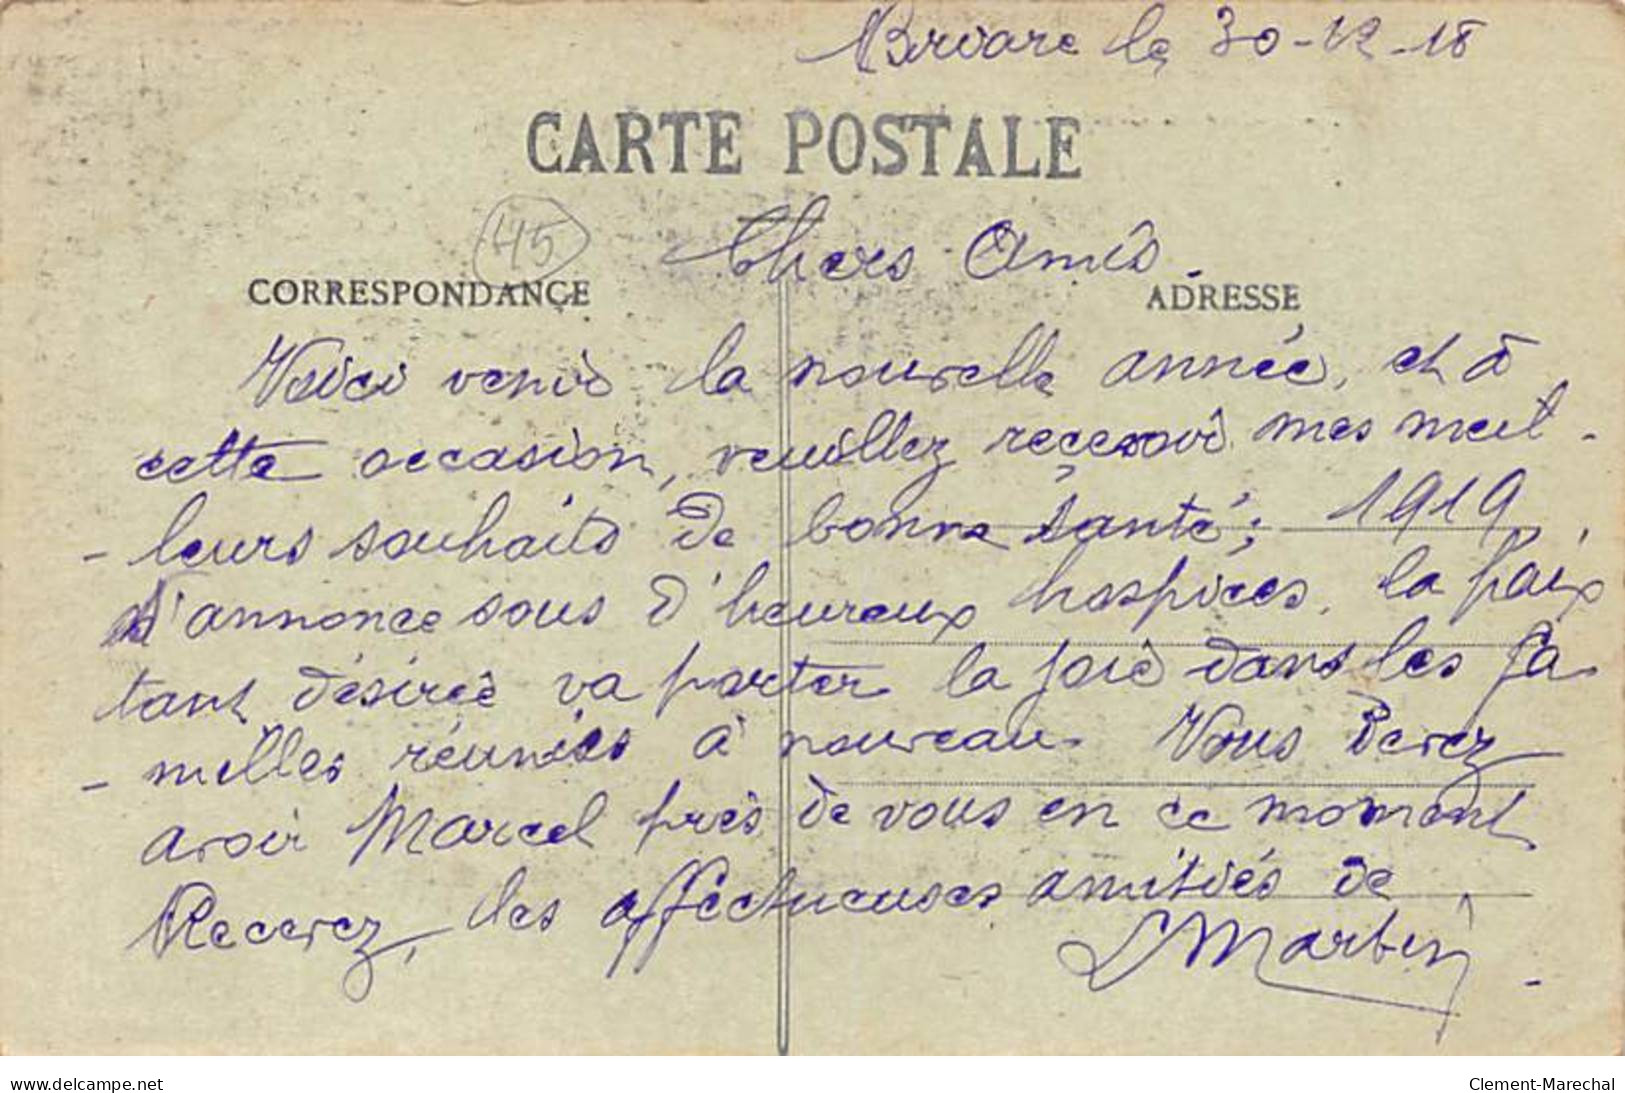 Briare le 30-12-18
CARTE POSTALE
45
Chers Amis
CORRESPONDANCE
ADRESSE
Voici venir la nouvelle année, et à
cette occasion, veuillez recevoir mes meil-
-leurs souhaits de bonne santé; 1919
s'annonce sous d'heureux hospices, la paix
tant désirée va porter la joie dans les fa
-milles réunies à nouveau. Vous devez
avoir Marcel près de vous en ce moment
Recevez, les affectueuses amitiés de
L Martin
www.delcampe.net
Clement-Marechal